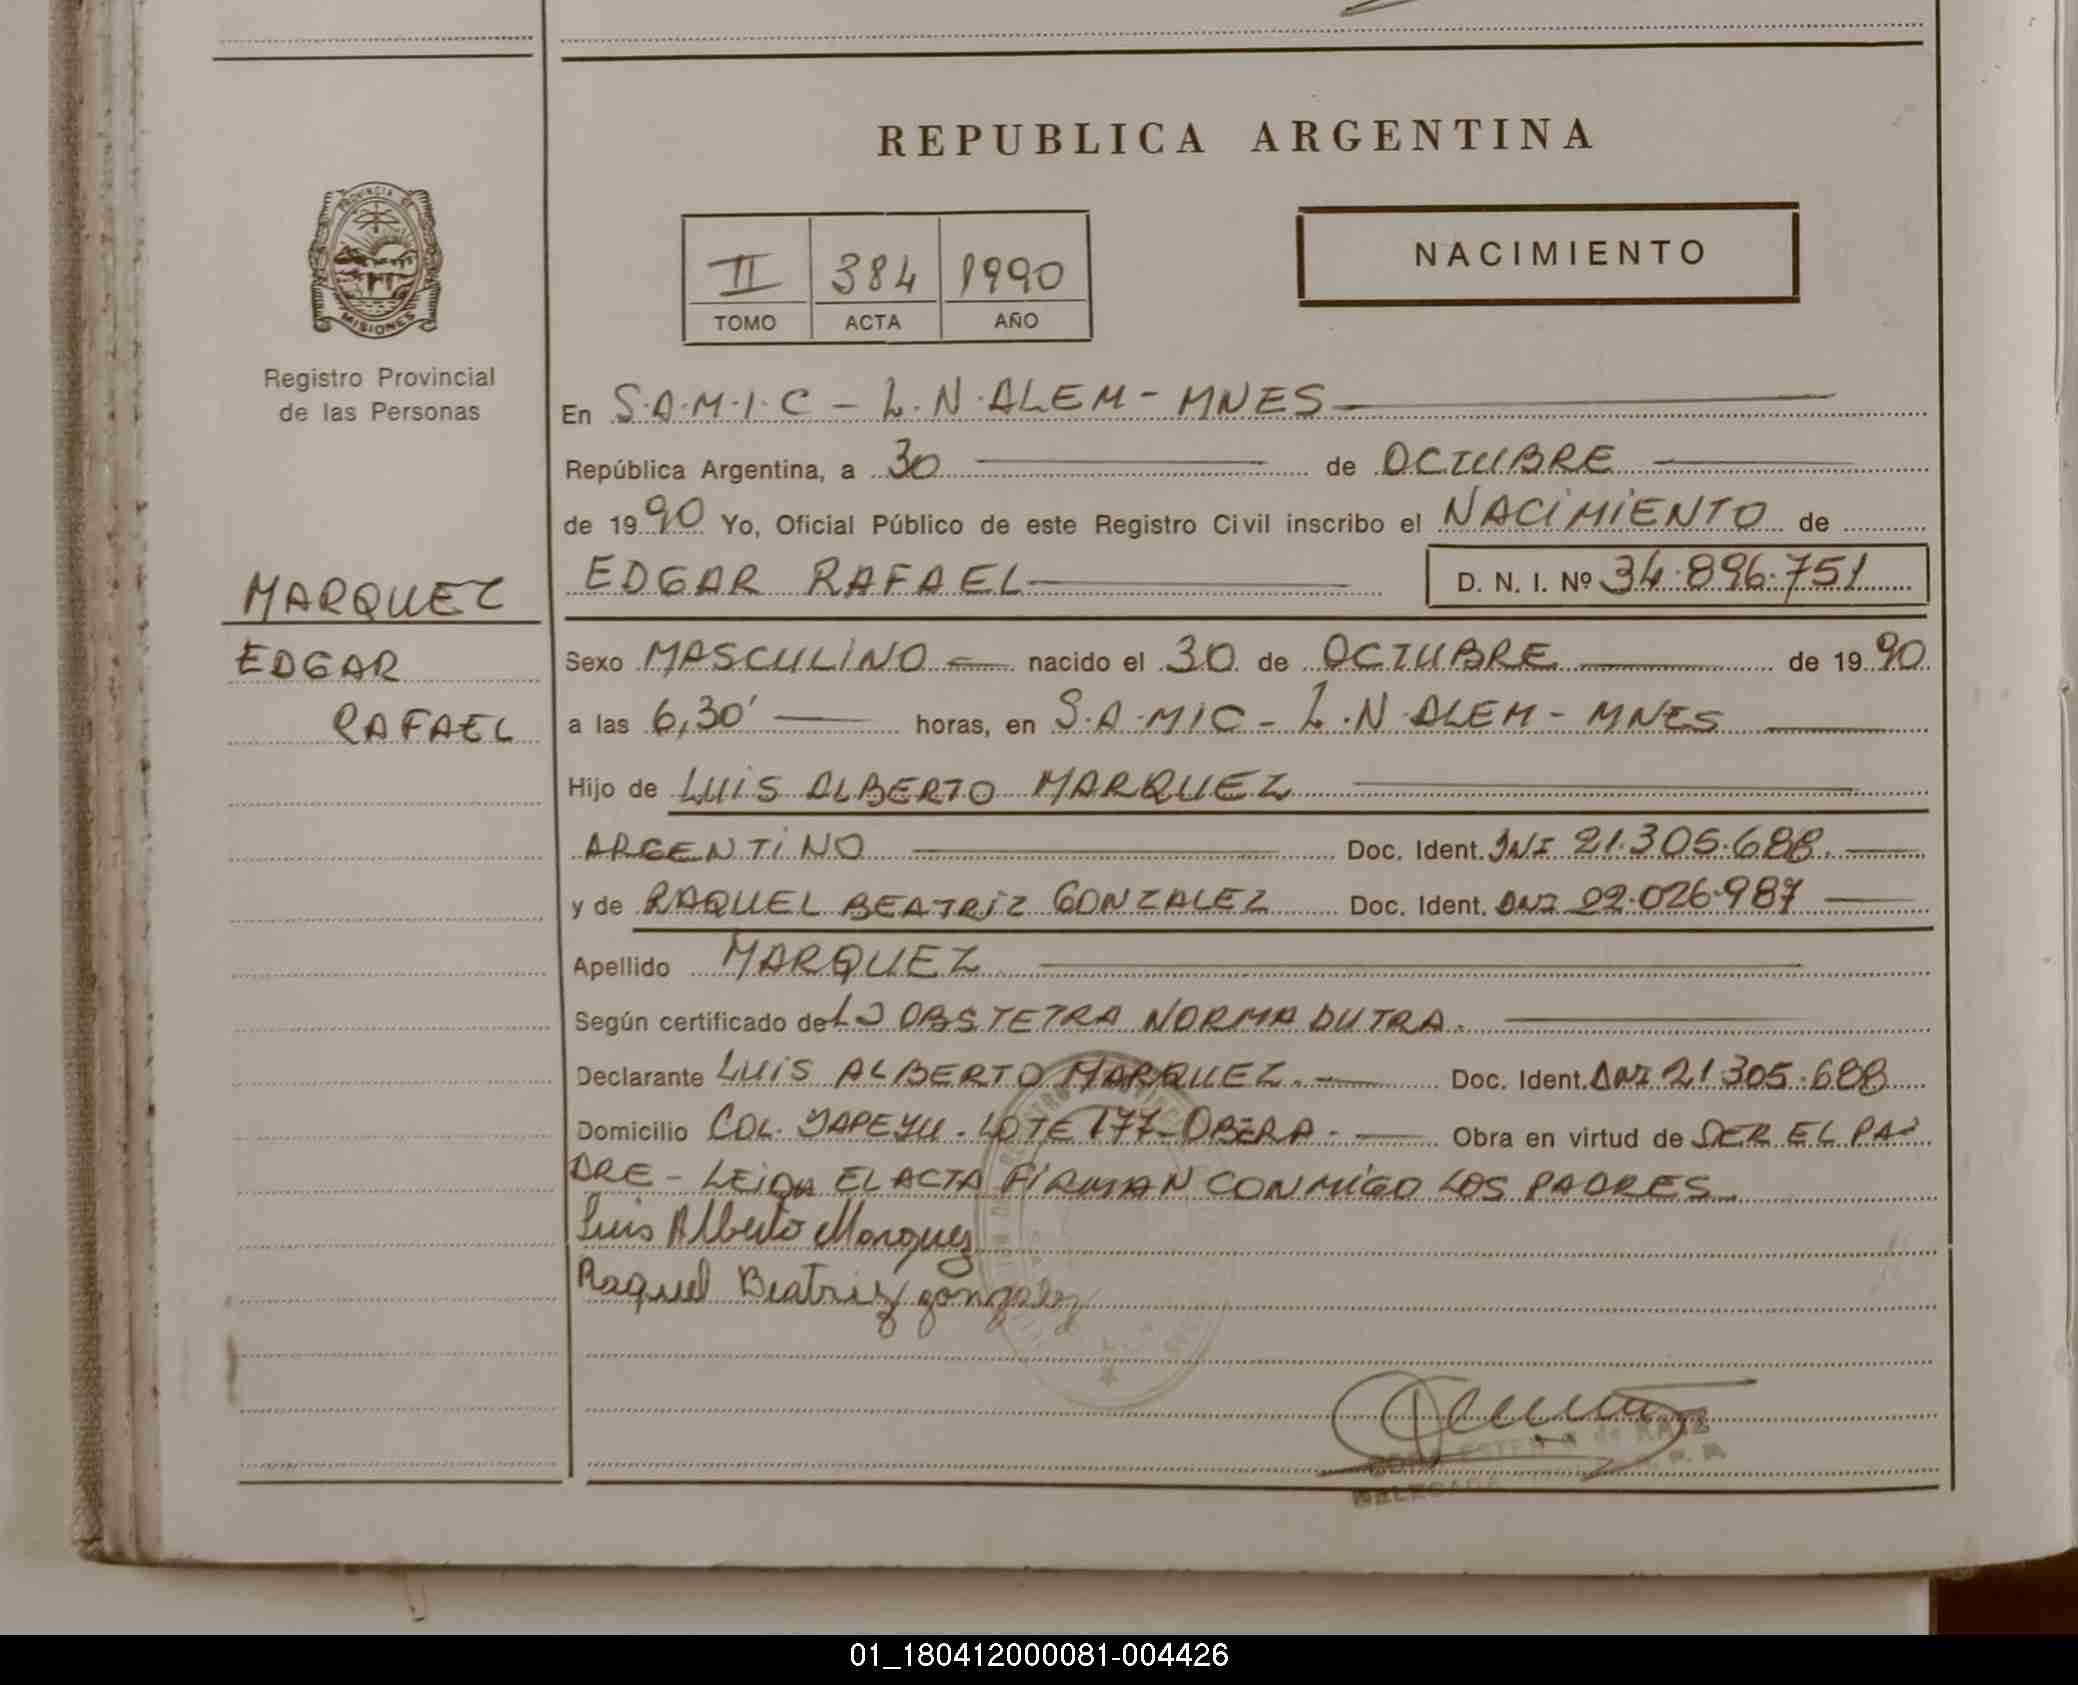 REPUBLICA ARGENTINA
PROVINCIA DE
MISIONES
Registro Provincial
de las Personas
II 384 1990
TOMO ACTA AÑO
NACIMIENTO
En S.A.M.I.C - L.N.ALEM - MNES
República Argentina, a 30 de OCTUBRE
de 1990 Yo, Oficial Público de este Registro Civil inscribo el NACIMIENTO de
EDGAR RAFAEL D. N. I. Nº 34.896.751
MARQUEZ
EDGAR
RAFAEL
Sexo MASCULINO nacido el 30 de OCTUBRE de 1990
a las 6,30' horas, en S.A.MIC - L.N.ALEM - MNES
Hijo de LUIS ALBERTO MARQUEZ
ARGENTINO Doc. Ident. DNI 21.305.688.
y de RAQUEL BEATRIZ GONZALEZ Doc. Ident. DNI 22.026.987
Apellido MARQUEZ
Según certificado de LA OBSTETRA NORMA DUTRA.
Declarante LUIS ALBERTO MARQUEZ. Doc. Ident. DNI 21.305.688
Domicilio COL. YAPEYU - LOTE 177 - OBERA - Obra en virtud de SER EL PA-
DRE - LEIDA EL ACTA FIRMAN CONMIGO LOS PADRES
Luis Alberto Marquez
Raquel Beatriz gonzalez
de KATZ
DELEGADA
01_180412000081-004426